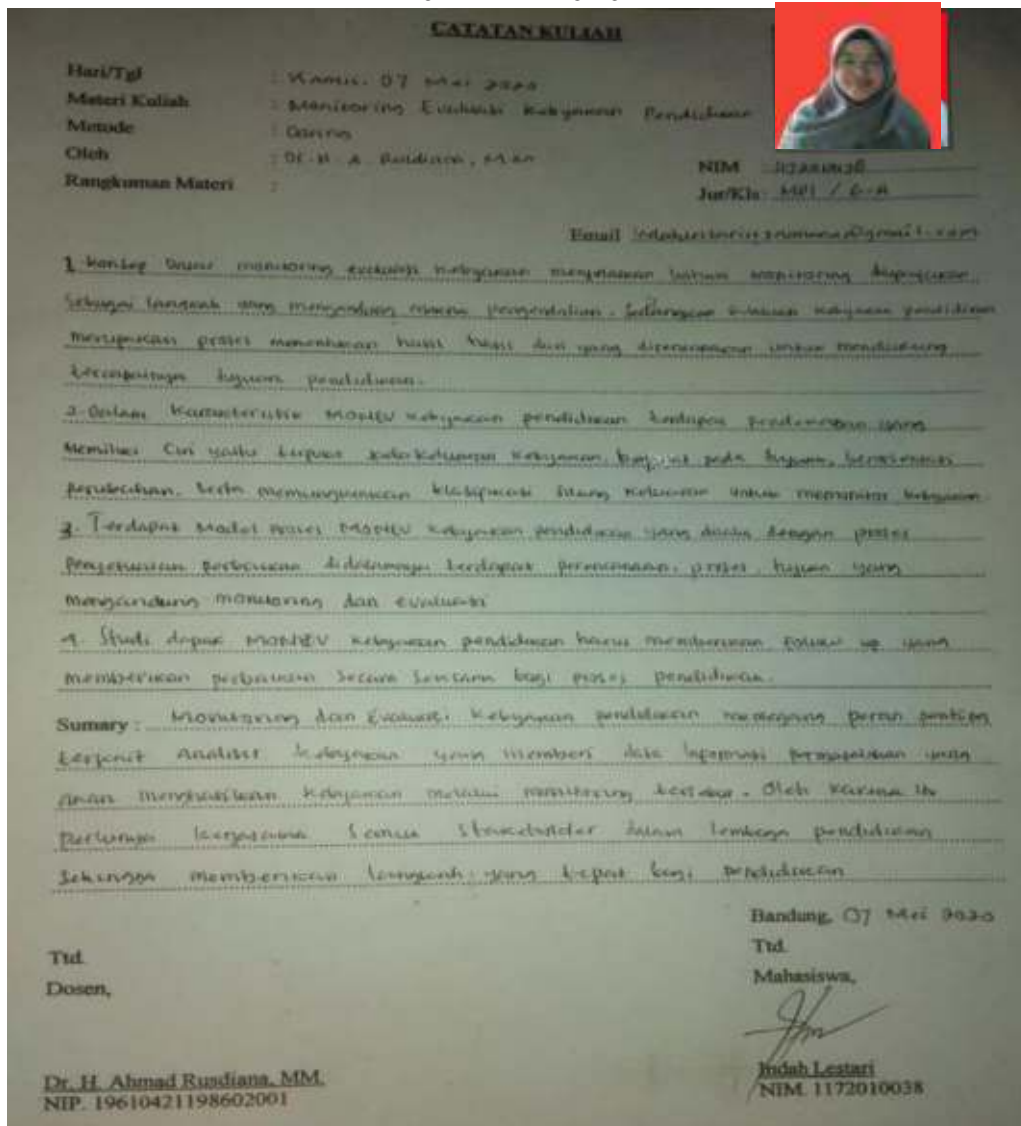 CATATAN KULIAH
Hari/Tgl : Kamis, 07 Mei 2020
Materi Kuliah : Monitoring Evaluasi Kebijakan Pendidikan
Metode : Daring
Oleh : Dr. H. A. Rusdiana, MM
NIM : 1172010038
Rangkuman Materi :
Jur/Kls : MPI / 6-A
Email :
1. Konsep Dasar monitoring evaluasi kebijakan menjelaskan bahwa monitoring
Sebagai langkah yang mengandung makna pengendalian. Sedangkan evaluasi kebijakan pendidikan
merupakan proses menentukan hasil hasil dari yang direncanakan untuk mendukung
tercapainya tujuan pendidikan.
2. Dalam Karakteristik MONEV kebijakan pendidikan terdapat yang
Memiliki Ciri yaitu pada tujuan, berorientasi
perubahan, Serta memungkinkan klasifikasi silang keluaran untuk memonitor kebijakan.
3. Terdapat Model proses MONEV kebijakan pendidikan yang dengan proses
didalamnya terdapat perencanaan, proses, tujuan yang
mengandung monitoring dan evaluasi
4. Studi dapak MONEV kebijakan pendidikan harus memberikan follow up yang
memberikan perbaikan secara bagi proses pendidikan.
Sumary : Monitoring dan Evaluasi Kebijakan pendidikan memegang peran penting
terkait Analisis kebijakan yang memberi data informasi permasalahan yang
akan menghasilkan kebijakan melalui monitoring tersebut. Oleh karena itu
perlunya kerjasama Semua Stakeholder dalam lembaga pendidikan
Sehingga memberikan langkah yang tepat bagi pendidikan
Bandung, 07 Mei 2020
Ttd. Ttd.
Dosen, Mahasiswa,
Dr. H. Ahmad Rusdiana, MM. Indah Lestari
NIP. 19610421198602001 NIM. 1172010038